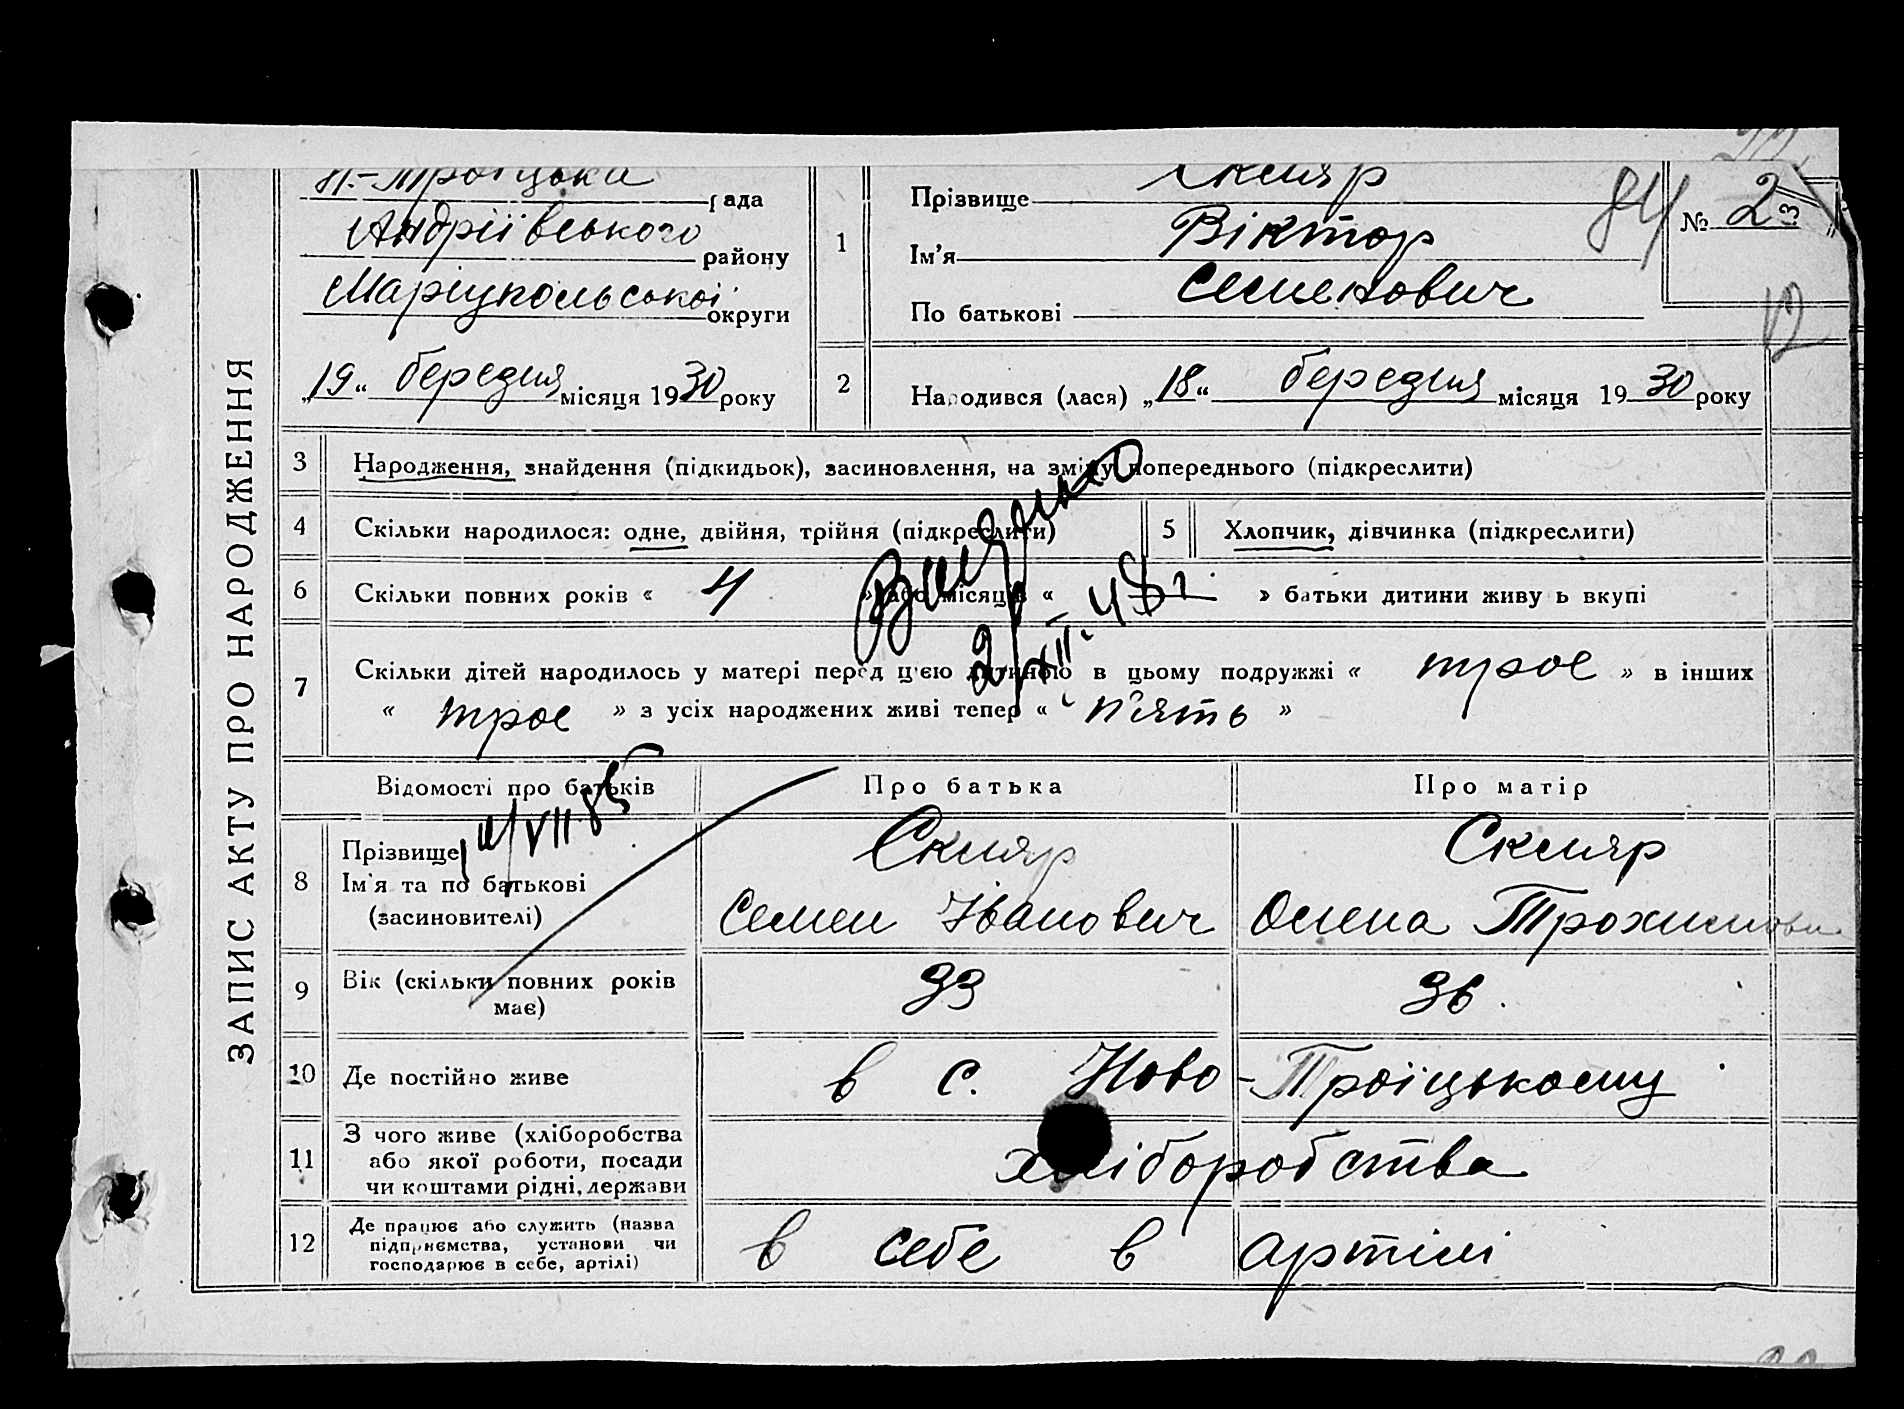 ЗАПИС АКТУ ПРО НАРОДЖЕННЯ
Н.-Троїцька рада
Андріївського району
Маріупольської округи
„19“ березня місяця 1930 року
1
Прізвище Скляр
Ім’я Віктор
По батькові Семенович
84
№ 23
12
2
Народився (лася) „18“ березня місяця 1930 року
3
Народження, знайдення (підкидьок), засиновлення, на зміну попереднього (підкреслити)
4
Скільки народилося: одне, двійня, трійня (підкреслити)
5
Хлопчик, дівчинка (підкреслити)
6
Скільки повних років « 4 » або місяців « — » батьки дитини живуть вкупі
7
Скільки дітей народилось у матері перед цією дитиною в цьому подружжі « троє » в інших
« троє » з усіх народжених живі тепер « п'ять »
Відомості про батьків
Про батька
Про матір
8
Прізвище
Ім’я та по батькові
(засиновителі)
Скляр
Семен Іванович
Скляр
Олена Трохимовна
9
Вік (скільки повних років
має)
33
36.
10
Де постійно живе
в с. Ново-Троїцькому
11
З чого живе (хліборобства
або якої роботи, посади
чи коштами рідні, держави
хліборобства
12
Де працює або служить (назва
підприємства, установи чи
господарює в себе, артілі)
в себе в артілі